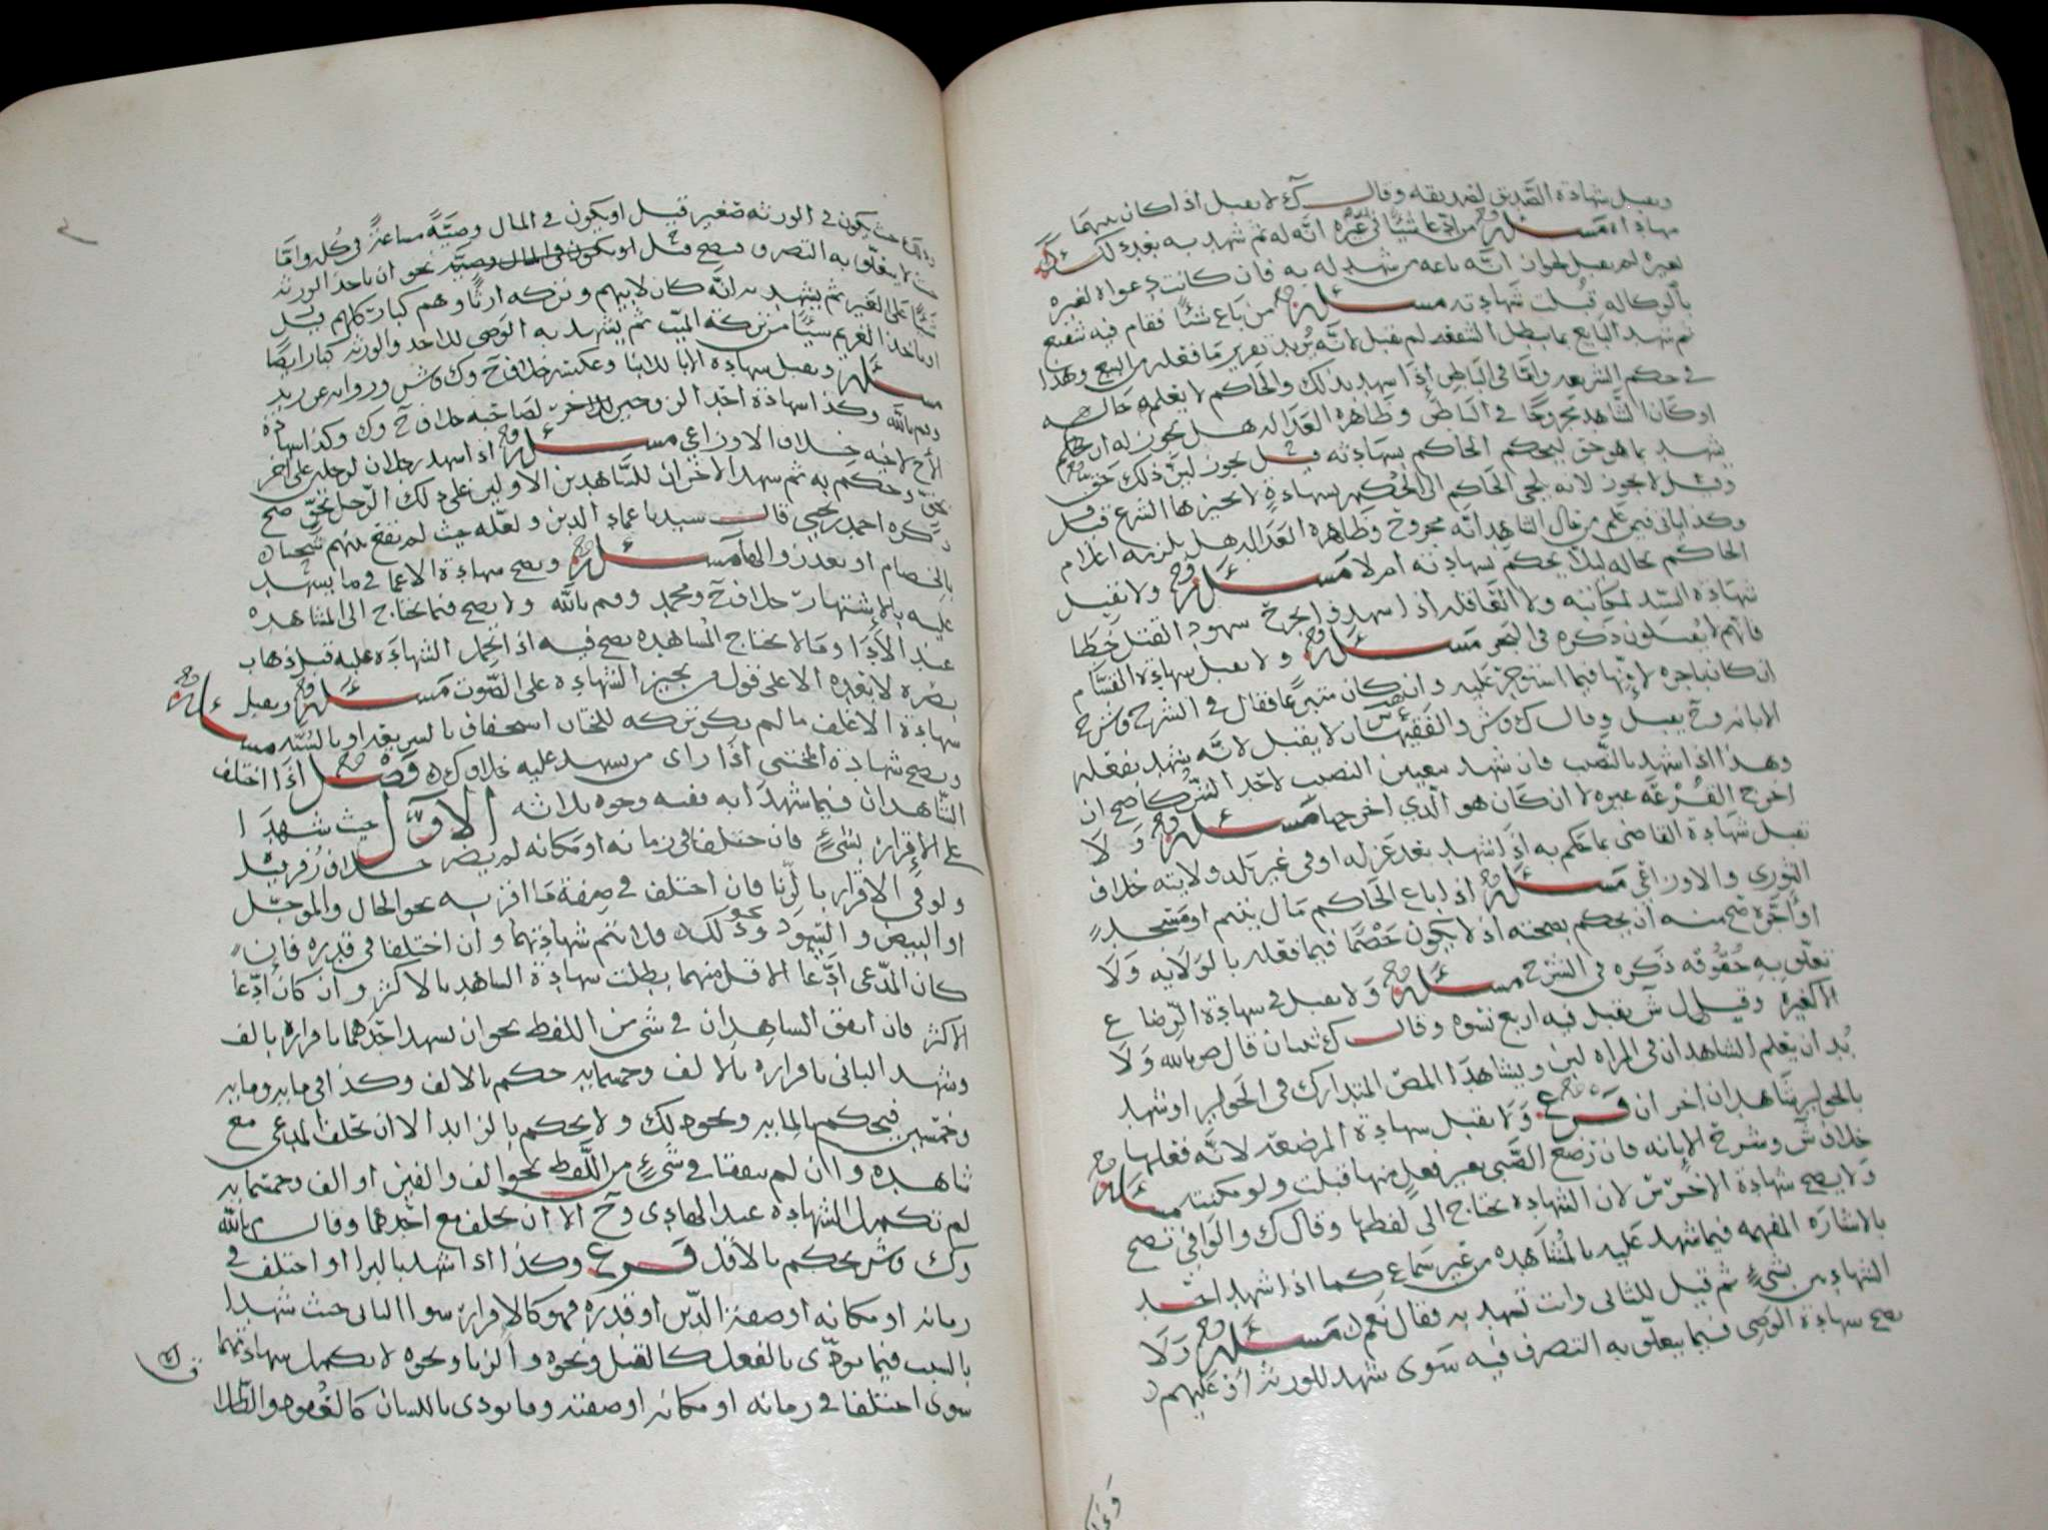 ويقبل شهادة الصديق لصديقه وقال ك لا يقبل اذا كان بينهما
مهاداه مسئلة من ادعا شيئًا في غيره انه له ثم شهد به بعد ذلك
لغيره لم يقبل لجواز انه باعه من شهد له به فان كانت دعواه لغيره
بالوكاله قبلت شهادته مسئلة من باع شئًا فقام فيه شفيع
ثم شهد البايع بما يبطل الشفعه لم تقبل لانه يريد تقرير ما فعله من البيع وهذا
في حكم الشريعه واما في الباطن اذا شهد بذلك والحاكم لا يعلم حاله
او كان الشاهد مجروحًا في الباطن وظاهره العداله هل يجوز له ان
يشهد بما هو حق ليحكم الحاكم بشهادته قيل يجوز لان ذلك حق
وقيل لا يجوز لانه يلجي الحاكم الى الحكم بشهادةٍ لا يجيزها الشرع
وكذا ياتي فيمن علم من حال الشاهد انه مجروح وظاهره العداله هل يلزمه اعلام
الحاكم بحاله ليلا يحكم بشهادته ام لا مسئلة ولا تقبل
شهادة السيد لمكاتبه ولا العاقله اذا شهدوا بجرح شهود القتل خطا
فانهم لا يقبلون ذكره في البحر مسئلة ولا يقبل شهادة القسام
ان كان باجره لا فيما استوجر عليه وان كان متبرعا فقال في الشرح وشرح
الابانه وح يقبل وقال ك وش والفقيهان لا يقبل لانه يشهد بفعله
وهذا اذا شهد بالنصيب فان شهد بتعيين النصيب لاحد الشركا صح ان
اخرج القرعه غيره لا ان كان هو الذي اخرجها مسئلة ولا
تقبل شهادة القاضي بما حكم به اذا شهد بعد عزله او في غير بلد ولايته خلاف
الثوري والاوزاعي مسئلة اذا باع الحاكم مال يتيم او مسجد
او نحوه صح منه ان يحكم بصحته اذ لا يكون خصما فيما فعله بالولايه ولا
تعلق به حقوقه ذكره في الشرح مسئلة ولا يقبل في شهادة الرضاع
الا كغيره وقيل ل ش يقبل فيه اربع نسوه وقال ك ثنتان قال م بالله ولا
بد ان يعلم الشاهدان في المراه لبن ويشاهدا المص المتدارك في الحولين او شهد
بالحولين شاهدان اخران فرع ولا يقبل شهادة المرضعه لانه فعلها
خلاف ش وشرح الابانه فان رضع الصبي بغير فعل منها قبلت ولو مكنته مسئلة
ولا يصح شهادة الاخرس لان الشهاده يحتاج الى لفظها وقال ك والوافي تصح
بالاشاره المفهمه فيما شهد عليه بالمشاهده من غير سماع كما اذا شهد احد
الشهادين بشيءٍ ثم قيل للثاني وانت تشهد به فقال نعم مسئلة ولا
يصح شهادة الوصي فيما يتعلق به التصرف فيه سوى شهد للورثه او عليهم
حيث يكون في الورثه صغير قيل او يكون في المال وصيةً مشاعةً في كله واما
حيث لا يتعلق به التصرف فيصح قيل نحو ان ياخذ الورثه
شيئًا على الغير ثم يشهد به انه كان لابيهم وتركه ارثًا وهم كبار كلهم قيل
او ياخذ الغريم شيئًا من تركة الميت ثم يشهد به الوصي للاخذ والورثه كبار ايضًا
مسئلة ويقبل شهادة الابا للابنا وعكسه خلاف ح وك وش وروايه عن زيد
وم بالله وكذا شهادة احد الزوجين للاخر لصاحبه خلاف ح وك وكذا شهادة
الاخ لاخيه خلاف الاوزاعي مسئلة اذا شهد رجلان لرجل على اخر
بحق وحكم به ثم شهد الاخران للشاهدين الاولين على ذلك الرجل بحق صح
ذكره احمد بن يحيى قال سيدنا عماد الدين ولعله حيث لم تقع بينهم شحنا
بالخصام او بعد زوالها مسئلة ويصح شهادة الاعما في ما يشهد
عليه بالاشتهار خلاف ح ومحمد وم بالله ولا يصح فيما يحتاج الى المشاهده
عند الادا وما لا يحتاج المشاهده يصح فيه اذا تحمل الشهاده عليه قبل ذهاب
بصره لا بعده الا على قول من يجيز الشهاده على الصوت مسئلة ويقبل
شهادة الاغلف ما لم يكن تركه للختان استخفاف بالشريعه او بالسنه مسئلة
ويصح شهادة المختبي اذا راى من يشهد عليه خلاف ك فصل اذا اختلف
الشاهدان فيما شهدا به ففيه وجوه ثلاثه الاول حيث شهدا
على الاقرار بشيءٍ فان اختلفا في زمانه او مكانه لم يضر خلاف زفر قيل
ولو في الاقرار بالزنا فان اختلف في صفة ما اقر به نحو الحال والموجل
او البيض والسود ونحو ذلك فلا تتم شهادتهما وان اختلفا في قدره فان
كان المدعي ادعا الاقل منهما بطلت شهادة الشاهد بالاكثر وان كان ادعا
الاكثر فان اتفق الشاهدان في شي من اللفظ نحو ان يشهد احدهما باقراره بالف
وشهد الثاني باقراره بالالف وخمسمايه حكم بالالف وكذا في مايه ومايه
وخمسين فيحكم بالمايه ونحو ذلك ولا يحكم بالزايد الا ان يحلف المدعي مع
شاهده وان لم يتفقا في شيءٍ من اللفظ نحو الف والفين او الف وخمسمايه
لم تكمل الشهاده عند الهادي وح الا ان يحلف مع احدهما وقال م بالله
وك وش يحكم بالاقل فرع وكذا اذا شهدا بالبرا او اختلف في
زمانه او مكانه او صفة الدين او قدره فهو كالاقرار سوا الثاني حيث شهدا
بالسبب فيما يودى بالفعل كالقتل ونحوه والزنا ونحوه لا يكمل شهادتهما
سوى اختلفا في زمانه او مكانه او صفته وما يودى باللسان كالعقود والطلاق